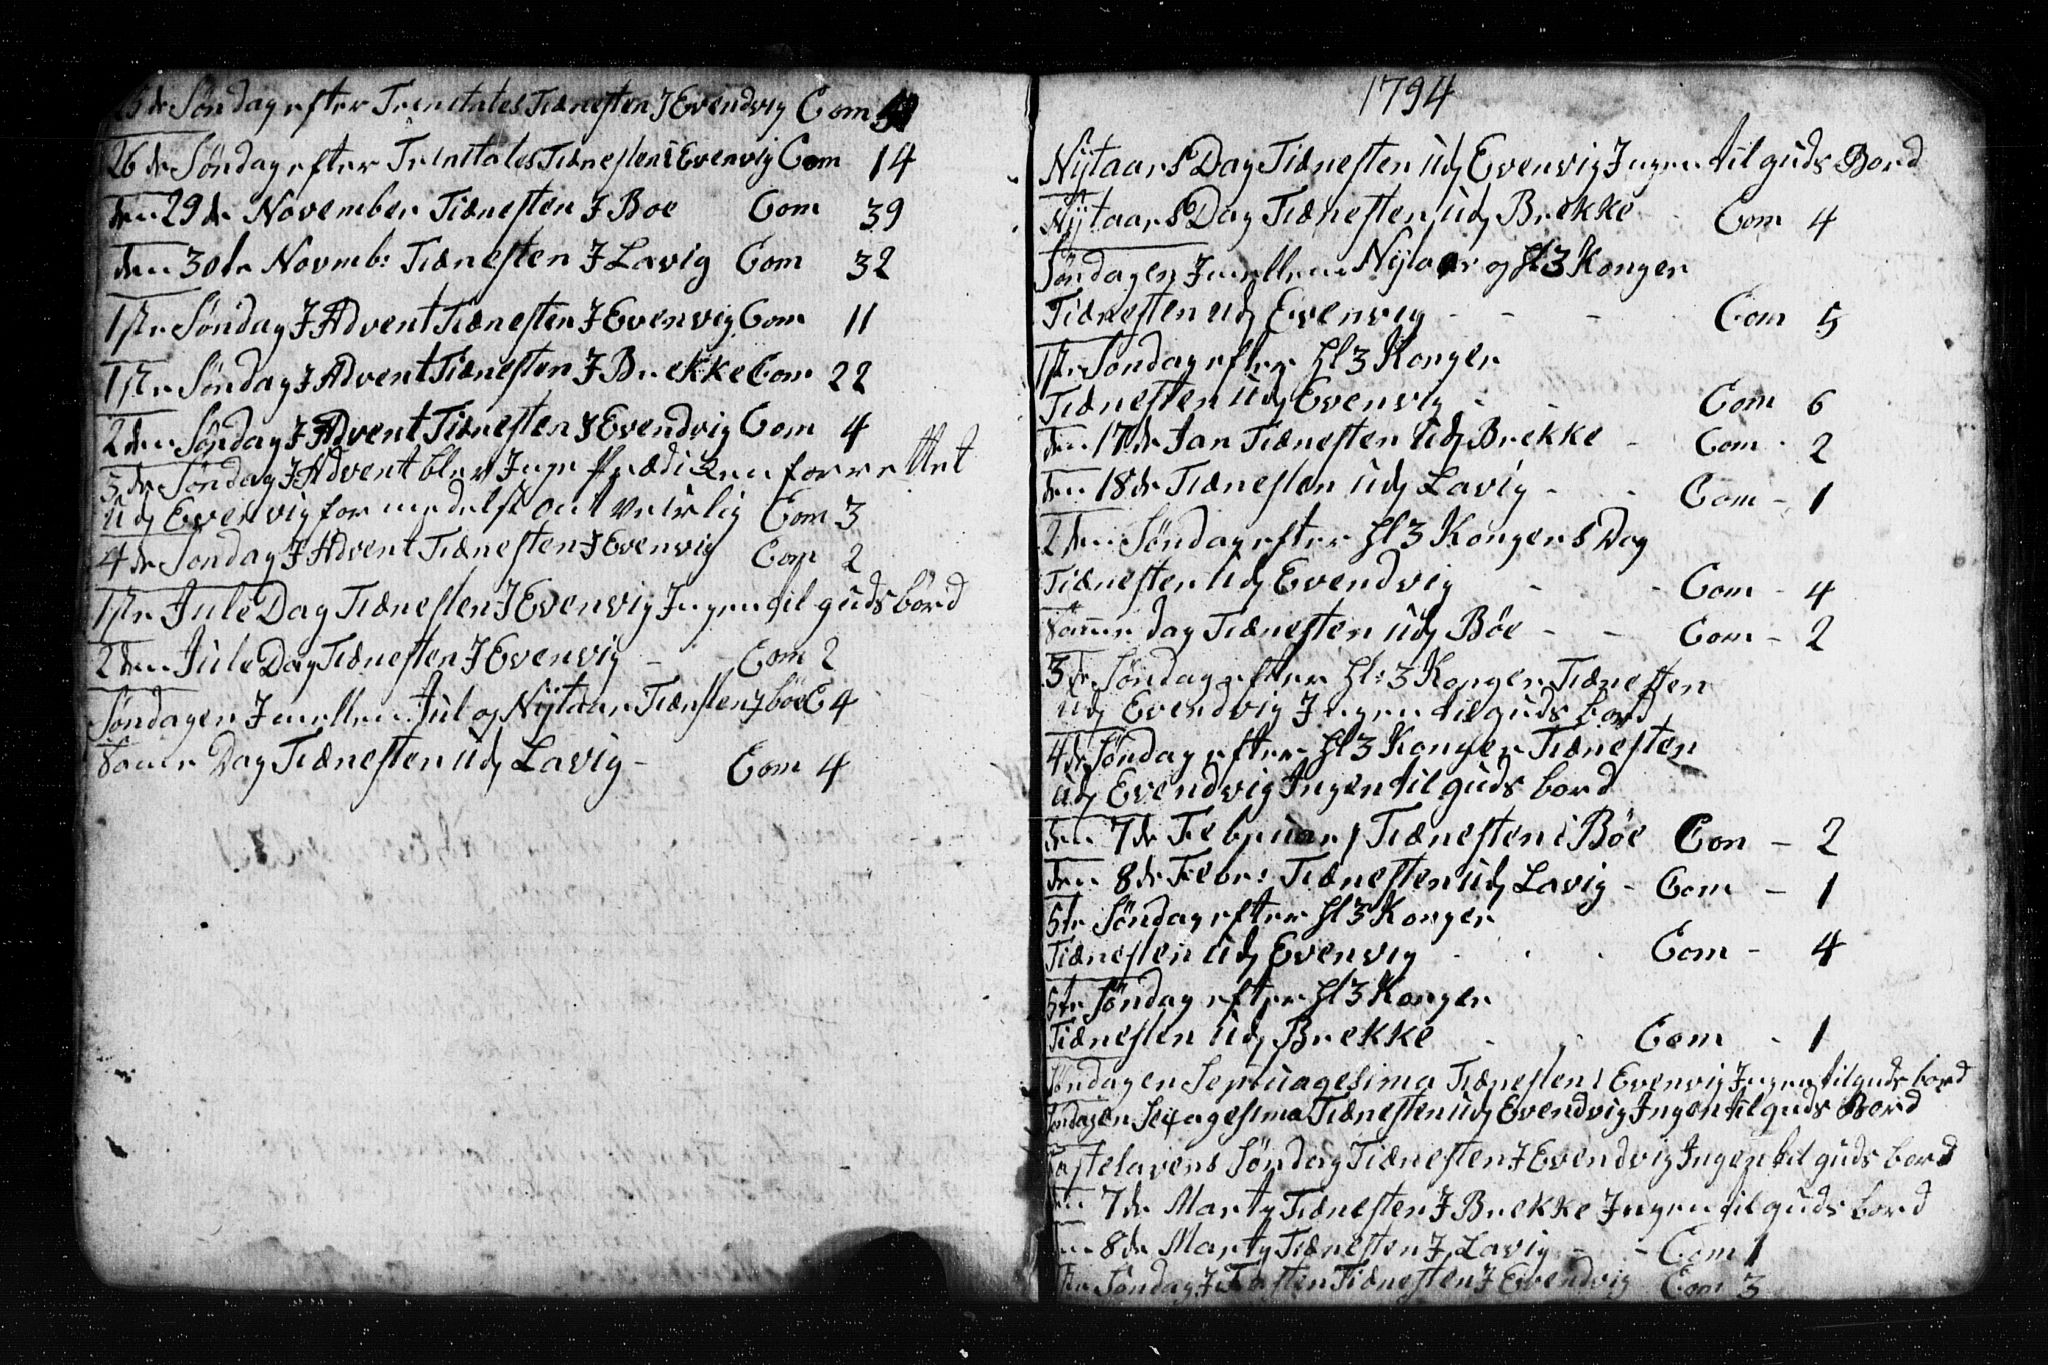 25de Søndag efter Trinitates Tiænesten J Evendvig Com
26de Søndag efter Trinitates Tiænesten i Evenvig Com 14
den 29de November Tiænesten J Boe Com 39
den 30te Novmb: Tiænesten J Lavig Com 32
1ste Søndag J Advent Tiænesten J Evenvig Com 11
1ste Søndag J Advent Tiænesten J Brekke Com 22
2den Søndag J Advent Tiænesten J Evendvig Com 4
3de Søndag J Advent blev Jngen Prædiken forrettet
udj Evenvig formedelst ont veirlig Com 3
4de Søndag J Advent Tiænesten J Evenvig Com 2
1ste Jule Dag Tiænesten J Evenvig Jngen til guds bord
2den Jule Dag Tiænesten J Evenvig - Com 2
Søndagen Jmellem Jul og Nytaar Tiænsten J böe C 4
Samme Dag Tiænesten udj Lavig - Com 4
1794
Nytaars Dag Tiænesten udj Evenvig Jngen til guds Bord
Nytaars Dag Tiænesten udj Brekke Com 4
Søndagen Jmellem Nytaar og Hl 3 Konger
Tiænesten udj Evenvig - - - Com 5
1ste Søndag efter Hl 3 Konger
Tiænesten udj Evenvig - - Com 6
den 17de Jan Tiænesten udj Brekke - Com - 2
den 18de Tiænesten udj Lavig - - Com - 1
2den Søndag efter Hl 3 Kongers Dag
Tiænesten udj Evendvig - - Com - 4
Samme dag Tiænesten udj Böe - - Com - 2
3de Søndag efter Hl: 3 Konger Tiænesten
udj Evendvig Jngen til guds bord
4de Søndag efter Hl 3 Konger Tiænesten
udj Evendvig Jngen til guds bord
den 7de Februarj Tiænesten i Böe Com - 2
den 8de Febr: Tiænesten udj Lavig - Com - 1
5te Søndag efter Hl 3 Konger
Tiænesten udj Evenvig - - - Com - 4
5te Søndag efter Hl 3 Konger
Tiænesten udj Brekke - - Com - 1
Søndagen Septuagesima Tiænesten i Evenvig Jngen til guds bord
Søndagen Sexagesima Tiænesten udj Evendvig Jngen til guds Bord
Fastelavens Søndag Tiænesten J Evendvig Jngen til guds bord
den 7de Marty Tiænesten J Brekke Jngen til guds bord
den 8de Marty Tiænesten J Lavig - - Com 1
1ste Søndag J Fasten Tiænesten J Evendvig Com 3